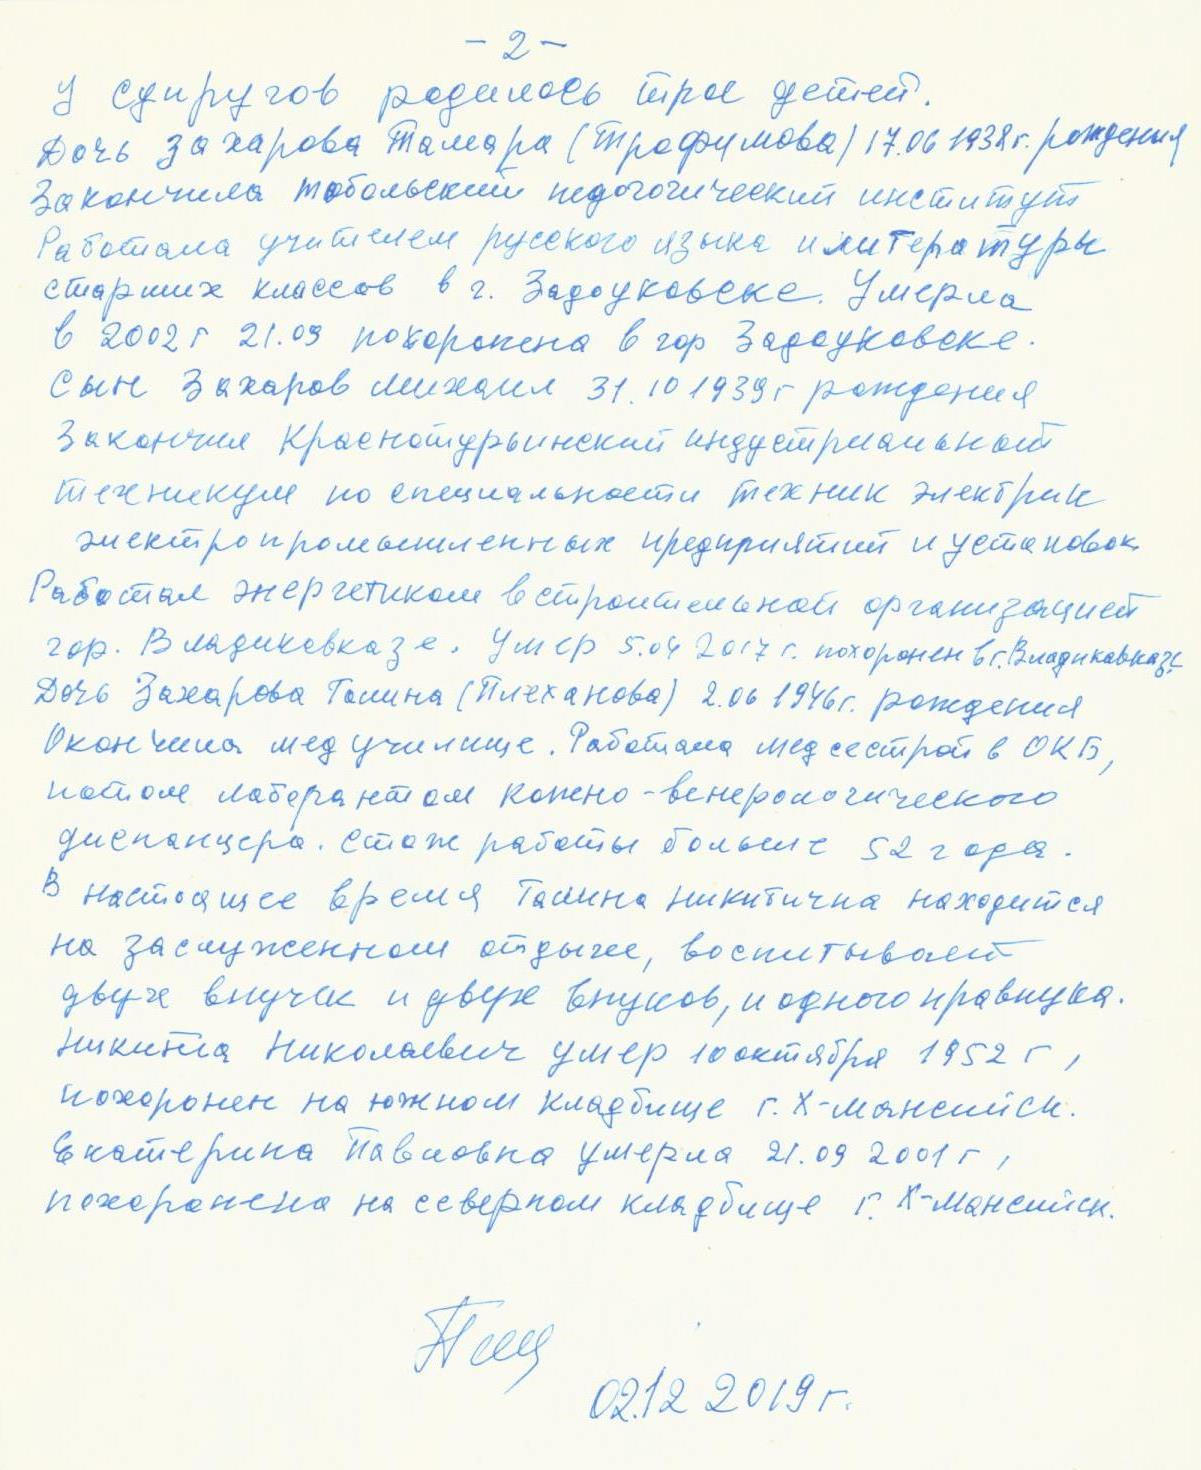 - 2 -
У супругов родилось трое детей.
Дочь Захарова Тамара (Трофимова) 17.06 1938 г. рождения
Закончила Тобольский педогогический институт
Работала учителем русского языка и литературы
старших классов в г. Завоуковске. Умерла
в 2002 г 21.09 похоронена в гор Завоуковске.
Сын Захаров Михаил 31.10 1939 г рождения
Закончил Краснотурьинский индустриальной
техникум по специальности техник электрик
электропромышленных предприятий и установок
Работал энергетиком в строительной организацией
гор. Владикавказе. Умер 5.04 2017 г. похоронен в г. Владикавказе
Дочь Захарова Галина (Плеханова) 2.06 1946 г. рождения
Окончила мед училище. Работала медсестрой в ОКБ,
потом лаборантом кожно-венерологического
диспанцера. Стаж работы больше 52 года.
В настоящее время Галина Никитична находится
на заслуженном отдыхе, воспитывает
двух внучек и двух внуков, и одного правнука.
Никита Николаевич умер 10 октября 1952 г,
похоронен на южном кладбище г. Х-Мансийск.
Екатерина Павловна умерла 21.09 2001 г,
похоронена на северном кладбище г. Х-Мансийск.
02.12 2019 г.